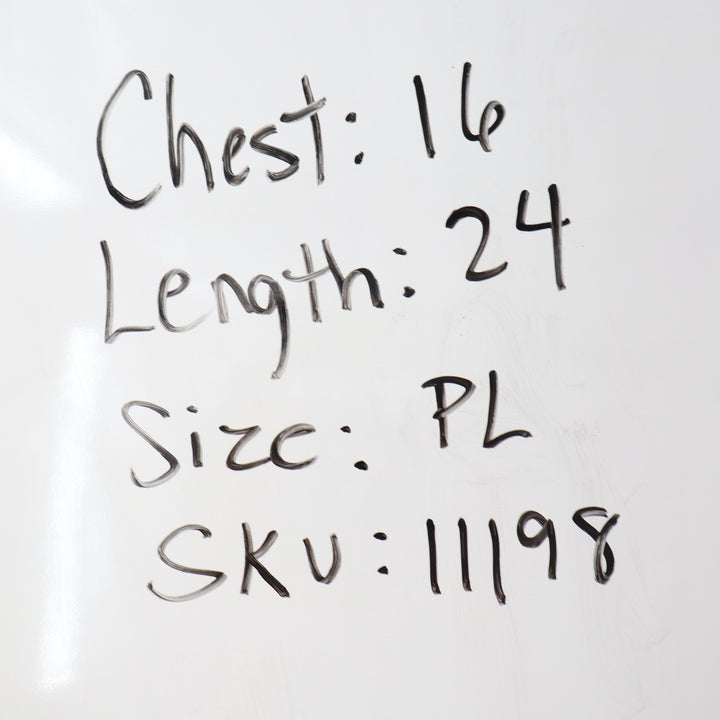 Chest: 16
Length: 24
Size: PL
SKU: 11198